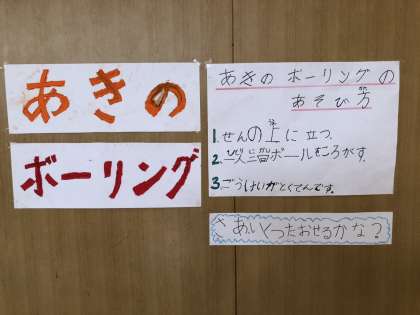 あきの
ボーリング
あきの ボーリングの
あそび方
1.せんの上に立つ。
2.一人二回ボールをころがす。
3.ごうけいがとくてんです。
さあ、いくつたおせるかな?